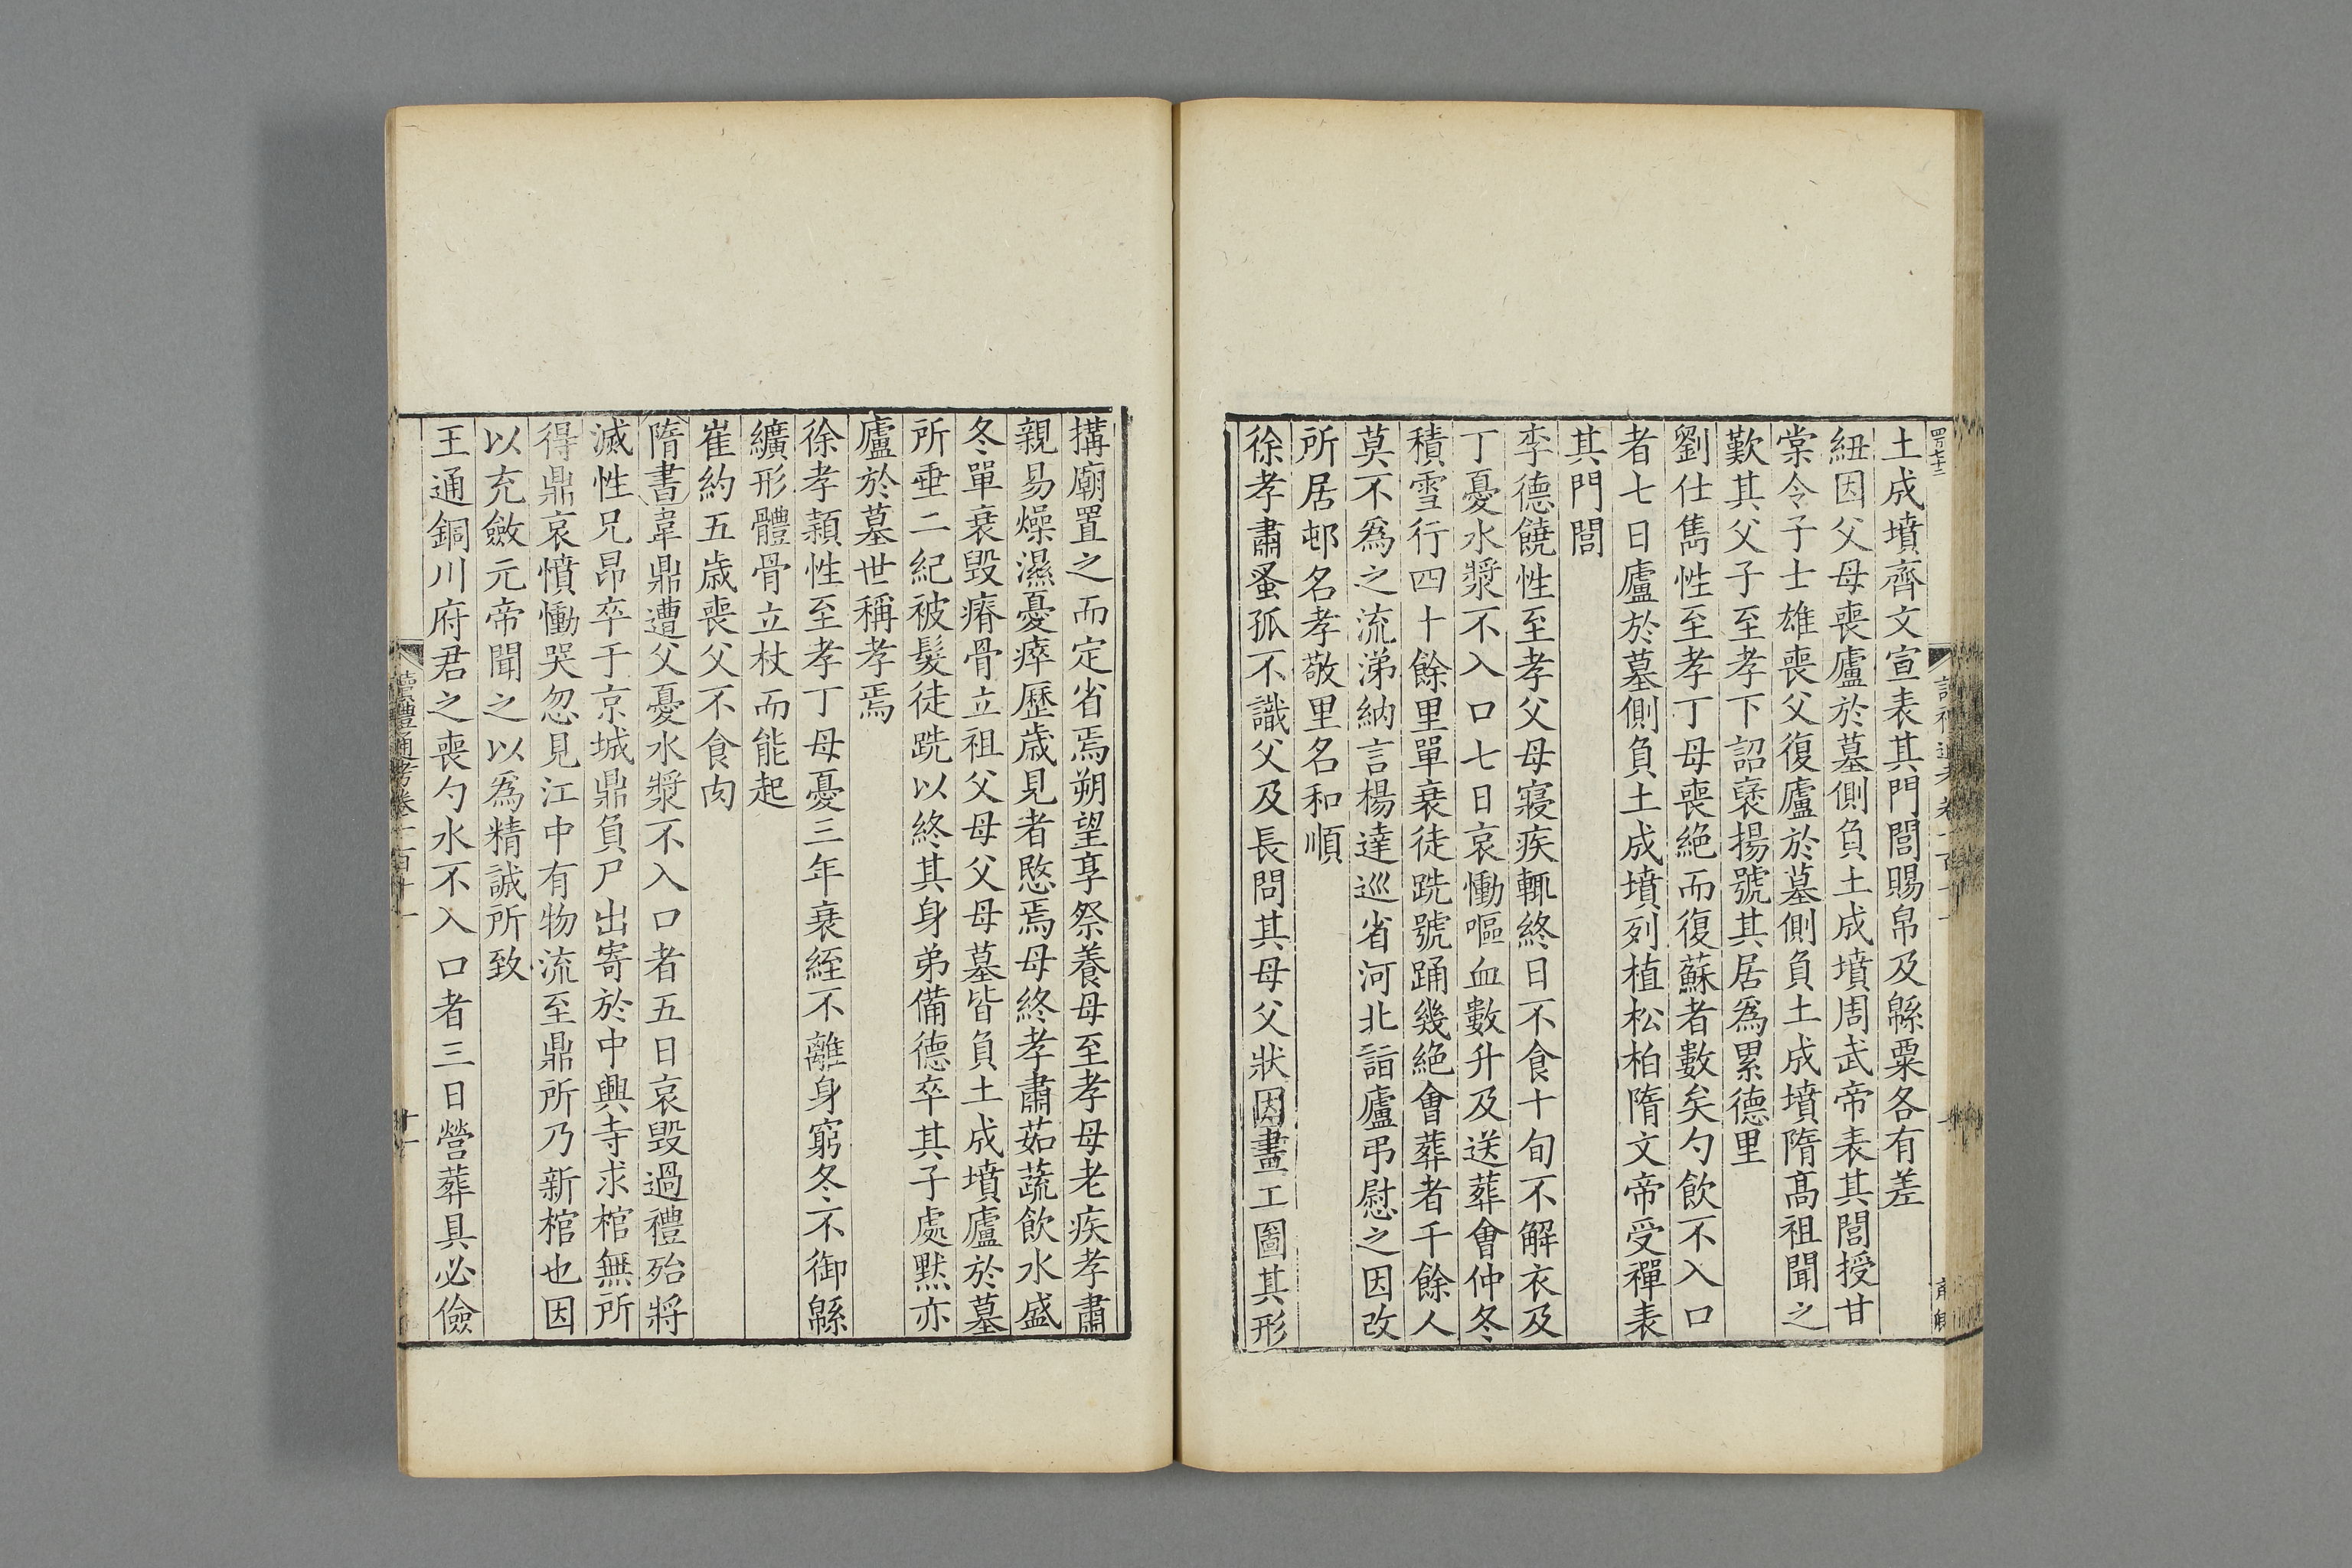 土成墳齊文宣表其門閭賜帛及緜粟各有差
紐因父母喪廬於墓側負土成墳周武帝表其閭授甘
棠令子士雄喪父復廬於墓側負土成墳隋髙祖聞之
歎其父子至孝下詔襃揚號其居爲累德里
劉仕雋性至孝丁母喪絕而復蘇者數矣勺飲不入口
者七日廬於墓側負土成墳列植松柏隋文帝受禪表
其門閭
李德饒性至孝父母寢疾輒終日不食十旬不解衣及
丁憂水漿不入口七日哀慟嘔血數升及送葬會仲冬
積雪行四十餘里單衰徒跣號踊幾絕會葬者千餘人
莫不爲之流涕納言楊達巡省河北詣廬弔慰之因改
所居邨名孝敬里名和順
徐孝肅蚤孤不識父及長問其母父狀因畫工圖其形
搆廟置之而定省焉朔望享祭養母至孝母老疾孝肅
親易燥濕憂瘁歷歲見者愍焉母終孝肅茹蔬飲水盛
冬單衰毀瘠骨立祖父母父母墓皆負土成墳廬於墓
所垂二紀被髮徒跣以終其身弟備德卒其子處默亦
廬於墓世稱孝焉
徐孝穎性至孝丁母憂三年衰絰不離身窮冬不御緜
纊形體骨立杖而能起
崔約五歲喪父不食肉
隋書韋鼎遭父憂水漿不入口者五日哀毀過禮殆將
滅性兄昂卒于京城鼎負尸出寄於中興寺求棺無所
得鼎哀憤慟哭忽見江中有物流至鼎所乃新棺也因
以充斂元帝聞之以爲精誠所致
王通銅川府君之喪勺水不入口者三日營葬具必儉
讀禮通考卷一百十一
十一